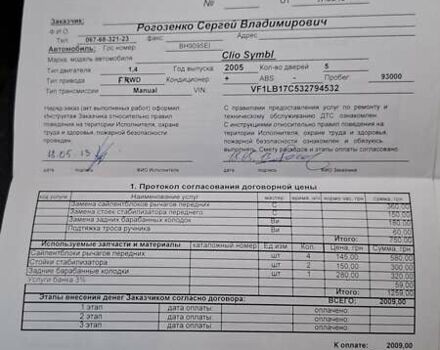 № ОТ
Заказчик:
Ф.И.О. Рогозенко Сергей Владимирович
Тел. 067-68-321-23 факс Адрес
Автомобиль: Гос номер BH9095EI
Марка, модель автомобиля Clio Symbl
Тип двигателя 1,4 Год выпуска 2005 Кол-во дверей 5
Тип привода FRWD Кондиционер + ABS - Пробег 93000
Тип трансмиссии Manual VIN: VF1LB17C532794532
Наряд-заказ (акт выполненых работ) оформил,
инструктаж Заказчика относительно правил
поведения на територии Исполнителя, охране
труда и здоровья, пожарной безопасности
проведен.
С правилами предоставления услуг по ремонту и
техническому обслуживанию ДТС ознакомлен
С инструкциями относительно правил поведения на
територии Исполнителя, охране труда и здоровья,
пожарной безопасности ознакомлен и обязуюсь
выполнять. Смету расходов и этапы оплаты согласовано
18.05.13
дата подпись ФИО Исполнителя
дата подпись ФИО Заказчика
1. Протокол согласования договорной цены
код услуги Наименование услуг мастер время, н/ч норма час, грн сумма, грн
Замена сайлентблоки рычагов передних С 360,00
Замена стоек стабилизатора переднего С 150,00
Замена задних барабанных колодок Ви 180,00
Подтяжка троса ручника Ви 60,00
Итого: 750,00
Используемые запчасти и материалы каталожный номер Ед.изм Кол. Цена, грн Сумма, грн
Сайлентблоки рычагов передних шт 4 145,00 580,00
Стойки стабилизатора шт 2 150,00 300,00
Задние барабанные колодки шт 1 280,00 320,00
Услуги банка 3% 59,00
Итого: 1259,00
Этапы внесения денег Заказчиком согласно договора: ВСЕГО: 2009,00
1 этап дата оплаты: оплачено:
2 этап дата оплаты: оплачено:
3 этап дата оплаты: оплачено:
К оплате: 2009,00